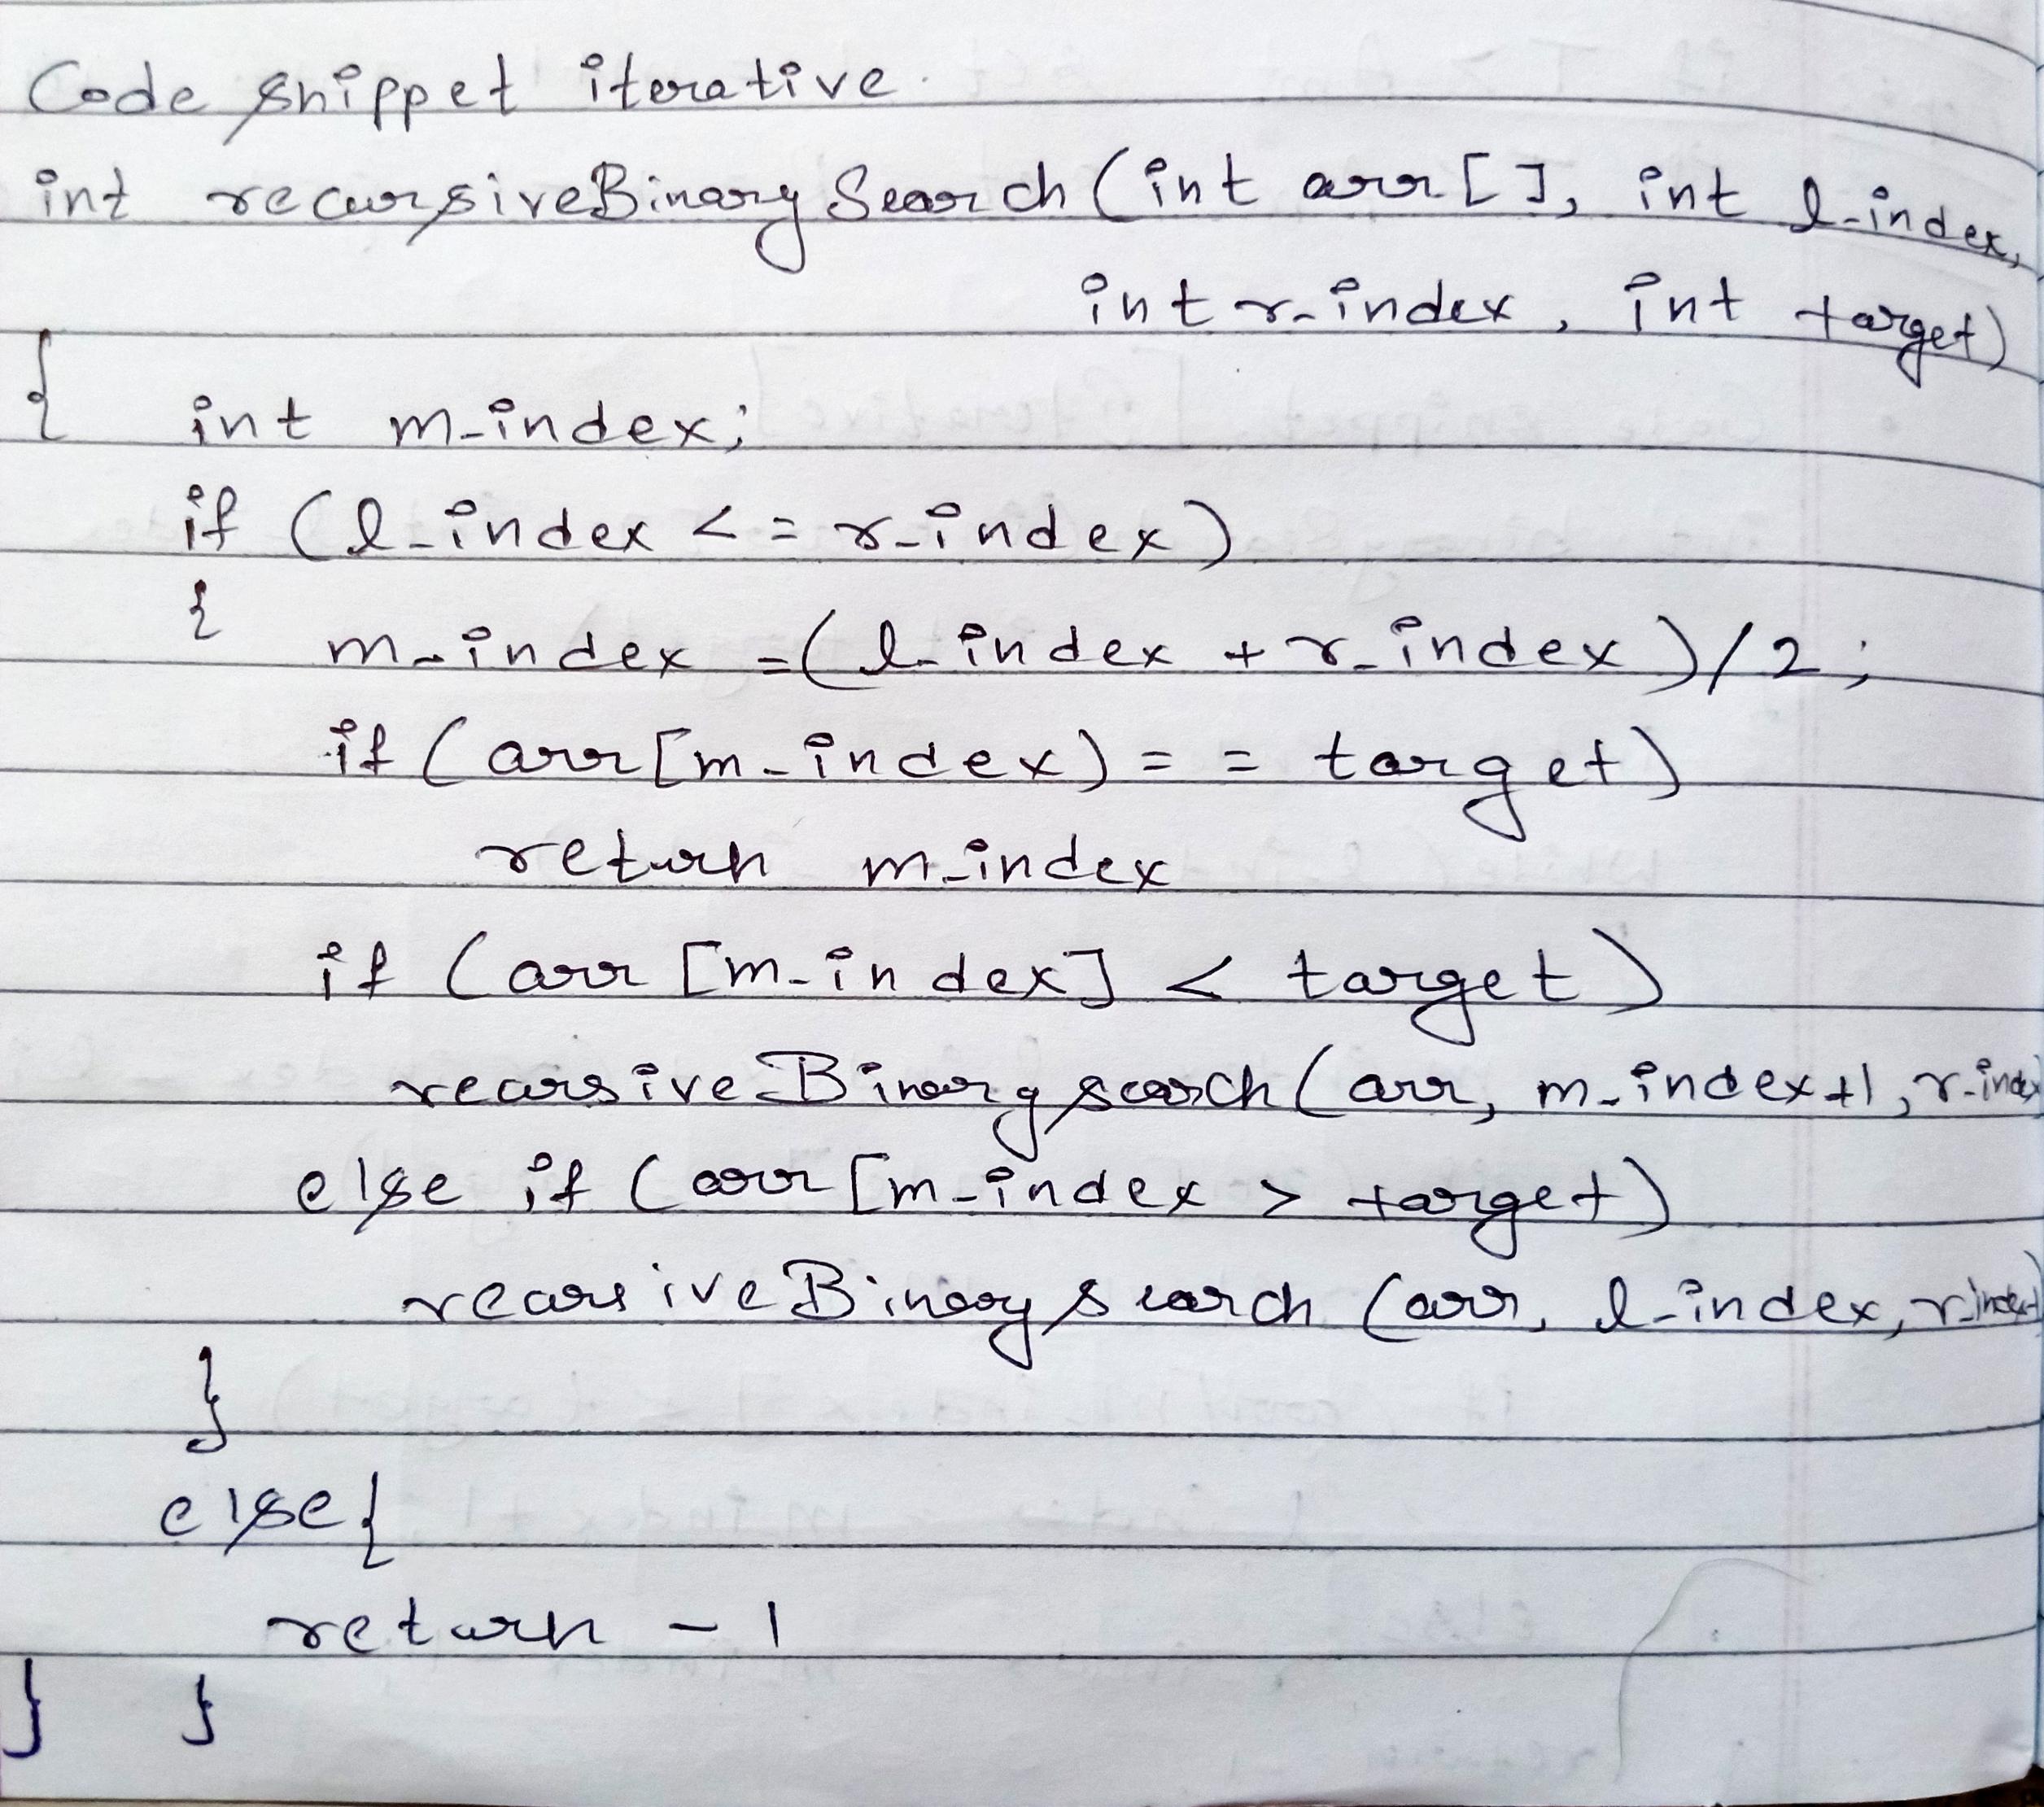 Code snippet iterative.
int recursiveBinarySearch (int arr[], int l_index,
int r_index, int target)
{ int m_index;
if (l_index <= r_index)
{ m_index =(l_index + r_index)/2;
if (arr[m_index) == target)
return m_index
if (arr [m_index] < target)
recursiveBinarysearch (arr, m_index+1, r_index
else if (arr [m_index > target)
recursiveBinarysearch (arr, l_index,
}
else{
return -1
} }